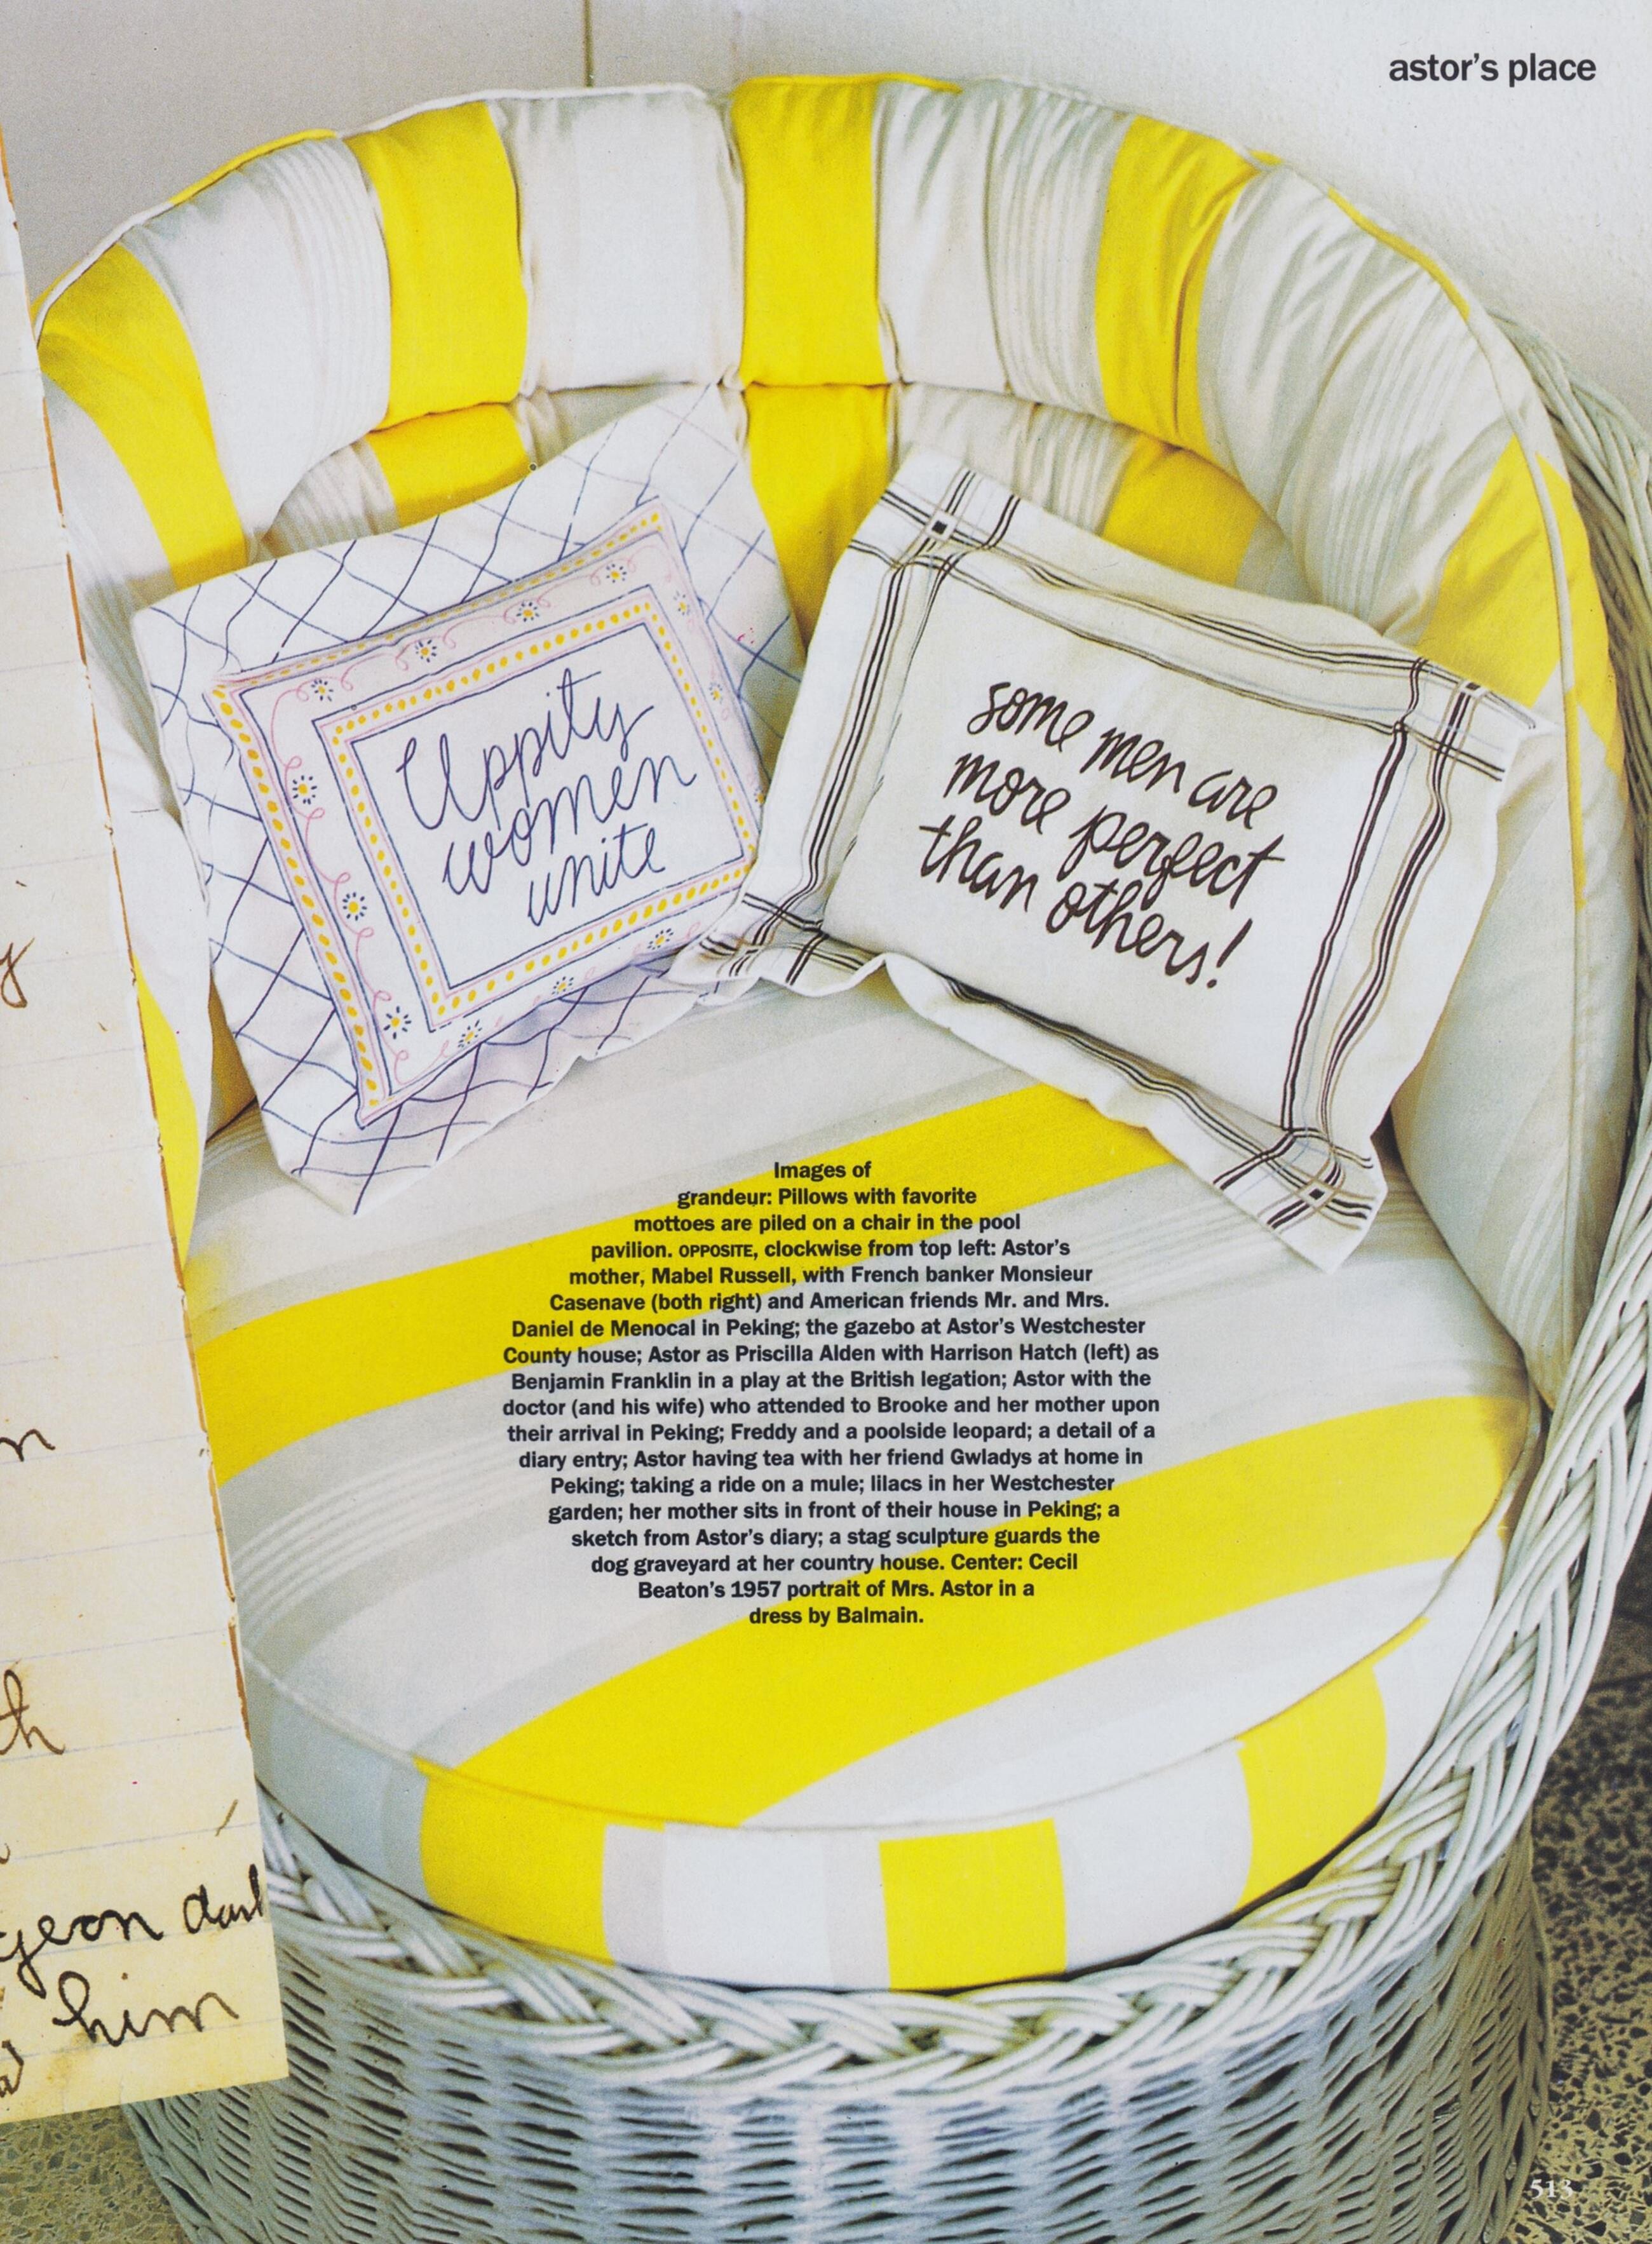 astor's place
Uppity
women
unite
some men are
more perfect
than others!
Images of
grandeur: Pillows with favorite
mottoes are piled on a chair in the pool
pavilion. OPPOSITE, clockwise from top left: Astor's
mother, Mabel Russell, with French banker Monsieur
Casenave (both right) and American friends Mr. and Mrs.
Daniel de Menocal in Peking; the gazebo at Astor's Westchester
County house; Astor as Priscilla Alden with Harrison Hatch (left) as
Benjamin Franklin in a play at the British legation; Astor with the
doctor (and his wife) who attended to Brooke and her mother upon
their arrival in Peking; Freddy and a poolside leopard; a detail of a
diary entry; Astor having tea with her friend Gwladys at home in
Peking; taking a ride on a mule; lilacs in her Westchester
garden; her mother sits in front of their house in Peking; a
sketch from Astor's diary; a stag sculpture guards the
dog graveyard at her country house. Center: Cecil
Beaton's 1957 portrait of Mrs. Astor in a
dress by Balmain.
him
513